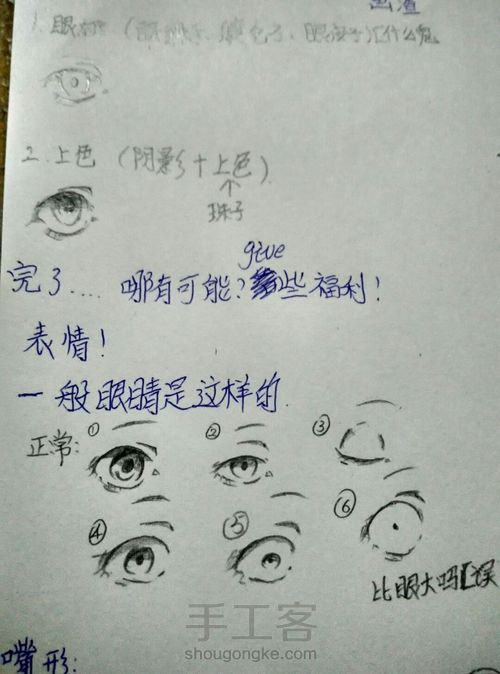 画渣
1. 眼
什么鬼
2. 上色 (阴影+上色)
↑
珠子
give
完了.... 哪有可能? 些福利!
表情!
一般眼睛是这样的
正常: ① ② ③
④ ⑤ ⑥
比眼大吗【误
嘴形:
手工客
shougongke.com